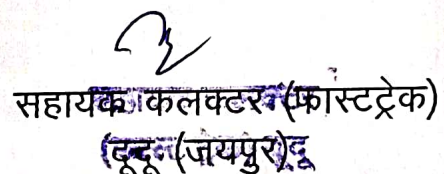 सहायक कलक्टर (फास्टट्रेक)
दूदू (जयपुर)